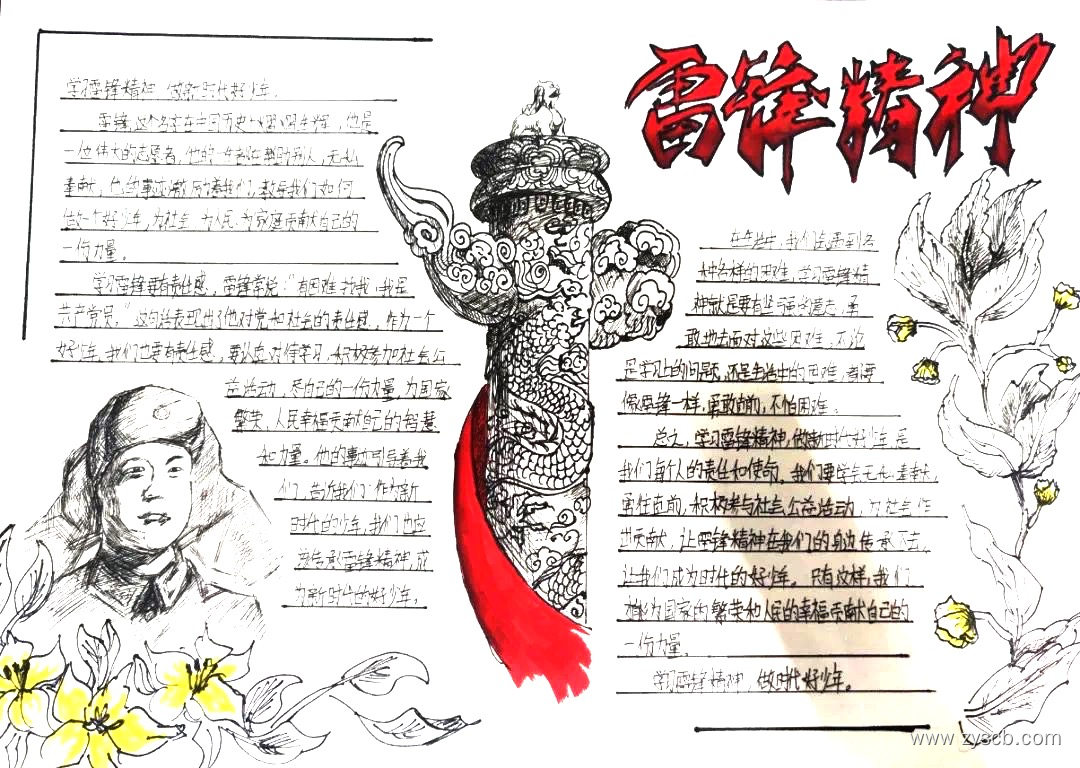 雷锋精神
学习雷锋精神，做新时代好少年。
雷锋，这个名字在中国历史上熠熠生辉，他是
一位伟大的志愿者，他的一生都在帮助别人，无私
奉献，他的事迹激励着我们，教导我们如何
做一个好少年，为社会、为人民、为家庭贡献自己的
一份力量。
学习雷锋要有责任感，雷锋常说："有困难找我，我是
共产党员。"这句话表现出了他对党和社会的责任感，作为一个
好少年，我们也要有责任感，要认真对待学习，积极参加社会公
益活动，尽自己的一份力量，为国家
繁荣、人民幸福贡献自己的智慧
和力量。他的事迹引导着我
们，告诉我们：作为新
时代的少年，我们也应
该传承雷锋精神，成
为新时代的好少年。
在生活中，我们会遇到各
种各样的困难，学习雷锋精
神就是要有坚强的意志，勇
敢地去面对这些困难，不论
是学习上的问题，还是生活中的困难，都要
像雷锋一样，勇敢向前，不怕困难。
总之，学习雷锋精神，做新时代好少年是
我们每个人的责任和使命，我们要学会无私奉献，
勇往直前，积极参与社会公益活动，为社会作
出贡献，让雷锋精神在我们的身边传承下去，
让我们成为时代的好少年。只有这样，我们
才能为国家的繁荣和人民的幸福贡献自己的
一份力量。
学习雷锋精神，做时代好少年。
www.zyscb.com